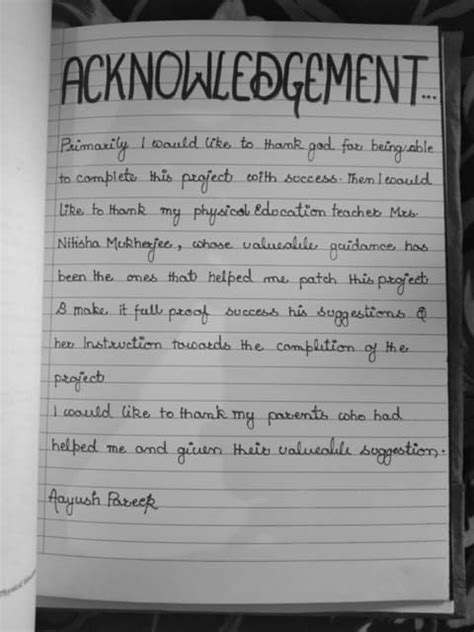 ACKNOWLEDGEMENT...
Primarily I would like to thank god for being able
to complete this project with success. Then I would
like to thank my physical Education teacher Mrs.
Nilisha Mukherjee, whose valuealile guidance has
been the ones that helped me patch this project
& make it full proof success his suggestions &
her Instruction towards the complition of the
project
I would like to thank my parents who had
helped me and given their valuealile suggestion.
Aayush Pareek
Physical